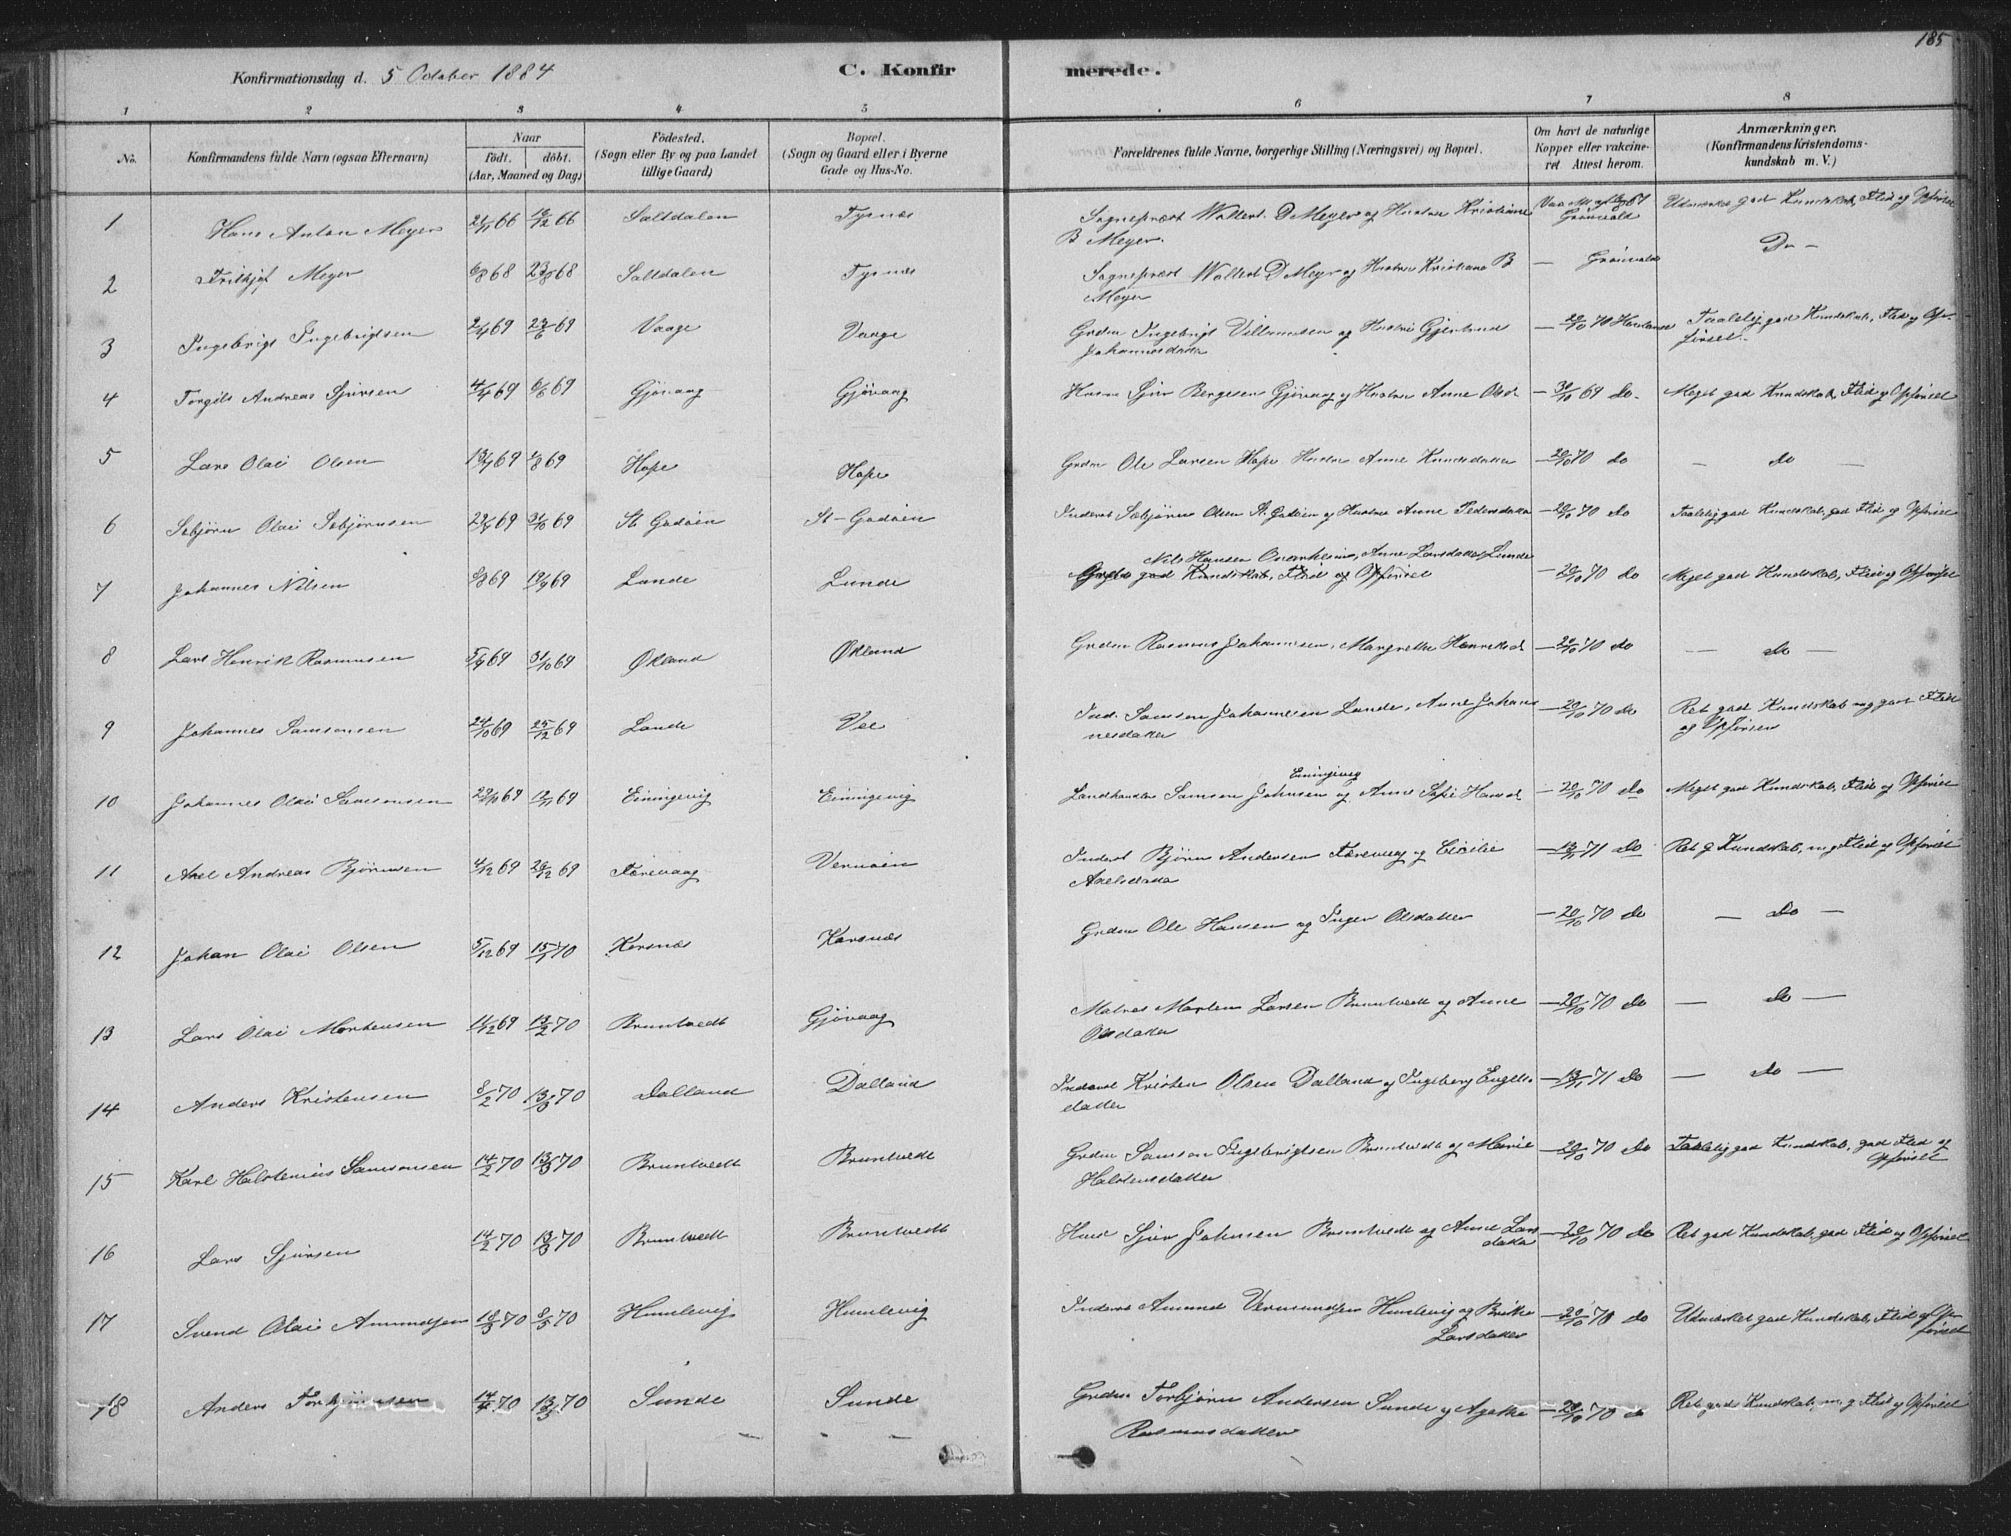 185
Konfirmationsdag d. 5 October 1884
C. Konfirmerede.
1 2 3 4 5 6 7 8
No.
Konfirmandens fulde Navn (ogsaa Efternavn)
Naar
födt. döbt.
(Aar, Maaned og Dag)
Födested.
(Sogn eller By og paa Landet
tillige Gaard)
Bopæl.
(Sogn og Gaard eller i Byerne
Gade og Hus-No.
Forældrenes fulde Navne, borgerlige Stilling (Næringsvei) og Bopæl.
Om havt de naturlige
Kopper eller vakcine-
ret Attest herom.
Anmærkninger.
(Konfirmandens Kristendoms-
kundskab m. V.)
1 Hans Anton Meyer 66 66 Saltdalen Tysnæs Sognepræst Wollert D Meyer og Hustru Kristiane
B Meyer. Grönvold Udmærket god Kundskab, Flid og Opförsel
2 Frithjof Meyer 6/8 68 23/8 68 Saltdalen Tysnæs Sognepræst Wollert D Meyer og Hustru Kristiane B
Meyer — Grönvold Do —
3 Ingebrigt Ingebrigtsen 2/4 69 69 Vaage Vaage Grdm Ingebrigt Villumsen og Hustru Gjertrud
Johannesdatter — 20/10 70 Taalelig god Kundskab, Flid og Op-
försel.
4 Torgils Andreas Sjursen 4/4 69 69 Gjövaag Gjövaag Husm Sjur Bergesen Gjövaag og Hustru Anne Olsd — 69 do. Meget god Kundskab, Flid og Opförsel
5 Lars Olai Olsen 69 69 Hope Hope Grdm Ole Larsen Hope Hustru Anne Knudsdatter — 20/10 70 do — do —
6 Sebjörn Olai Sebjörnsen 69 31/10 69 St Godöen St-Godöen Inderst Sæbjörn Olsen St. Godöen og Hustru Anne Pedersdatter — 20/10 70 do Taalelig god Kundskab, god Flid og Opförsel
7 Johannes Nilsen 69 19/9 69 Lunde Lunde Nils Hansen Onarheim, Anne Larsdatter Lunde
Meget god Kundskab, Flid og Opförsel — 20/10 70 do Meget god Kundskab, Flid og Opförsel
8 Lars Henrik Rasmussen 69 31/10 69 Økland Økland Grdm Rasmus Johannessen, Margrethe Henriksd — 20/10 70 do — do —
9 Johannes Samsonsen 24/10 69 25/12 69 Lande Vee Ind. Samson Johannesen Lande, Anne Johan-
nesdatter — 20/10 70 do Ret god Kundskab meg god Flid
og Opförsel
10 Johannes Olai Samsonsen 69 69 Einingevig Einingevig Landhandler Samson Johnsen Einingevig og Anne Sofie Hansd — 20/10 70 do Meget god Kundskab, Flid og Opförsel
11 Axel Andreas Björnsen 4/12 69 26/12 69 Færevaag Vernöen Inderst Björn Andersen Færevaag og Cicilie
Axelsdatter — 13/11 71 do Ret g Kundskab, m g Flid og Opförsel
12 Johan Olai Olsen 5/12 69 15/1 70 Kersnæs Karsnæs Grdm Ole Hansen og Inger Olsdatter — 20/10 70 do — Do —
13 Lars Olai Mortensen 11/12 69 13/2 70 Bruntvedt Gjövaag Matros Morten Larsen Bruntvedt og Anne
Olsdatter — 20/10 70 do — do —
14 Anders Kristensen 8/2 70 13/3 70 Dalland Dalland Inderst Kristen Olsen Dalland og Ingeborg Engels-
datter — 13/11 71 do — do —
15 Karl Halstenius Samsonsen 14/2 70 13/3 70 Bruntvedt Bruntvedt Grdm Samson Ingebrigtsen Bruntvedt og Marie
Halstensdatter — 20/10 70 do Taalelig god Kundskab, god Flid og
Opförsel
16 Lars Sjursen 14/2 70 13/3 70 Bruntvedt Bruntvedt Husm Sjur Johnsen Bruntvedt og Anne Lars
datter — 20/10 70 do Ret god Kundskab, god Flid og Opförsel
17 Svend Olai Amundsen 18/3 70 8/5 70 Humlevig Humlevig Inderst Amund Vermundsen Humlevig og Brithe
Larsdatter — 20/10 70 do Udmærket god Kundskab, Flid og Op-
försel
18 Anders Torbjörnsen 70 13/3 70 Sunde Sunde Grdm Torbjörn Andersen Sunde og Agathe
Rasmusdatter — 20/10 70 do Ret god Kundskab, m. g Flid og Opförsel